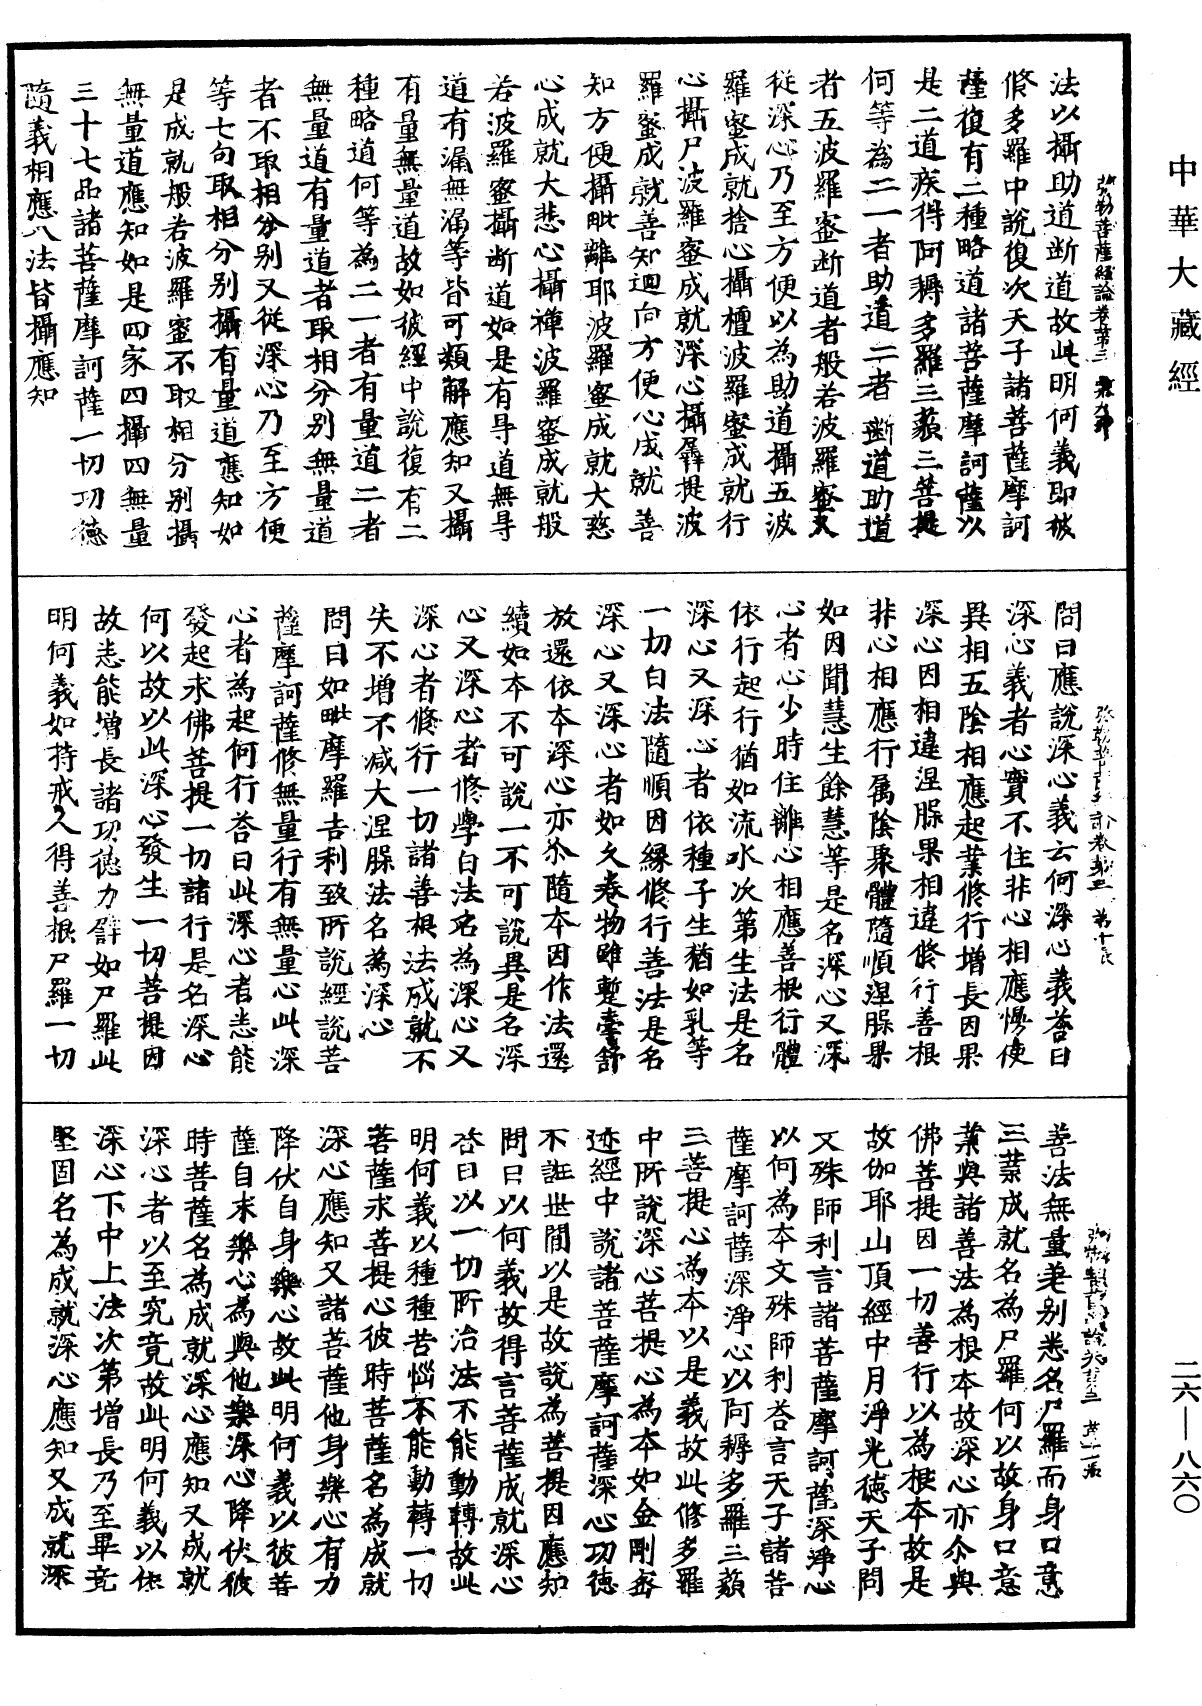 中華大藏經
彌勒菩薩經論卷第三
法以攝助道断道故此明何義即彼
修多羅中說復次天子諸菩薩摩訶
薩復有二種略道諸菩薩摩訶薩以
是二道疾得阿耨多羅三藐三菩提
何等為二一者助道二者断道助道
者五波羅蜜断道者般若波羅蜜又
從深心乃至方便以為助道攝五波
羅蜜成就捨心攝檀波羅蜜成就行
心攝尸波羅蜜成就深心攝羼提波
羅蜜成就善知迴向方便心成就善
知方便攝毗離耶波羅蜜成就大慈
心成就大悲心攝禪波羅蜜成就般
若波羅蜜攝断道如是有㝵道無㝵
道有漏無漏等皆可類解應知又攝
有量無量道故如彼經中說復有二
種略道何等為二一者有量道二者
無量道有量道者取相分别無量道
者不取相分别又從深心乃至方便
等七句取相分别攝有量道應知如
是成就般若波羅蜜不取相分别攝
無量道應知如是四家四攝四無量
三十七品諸菩薩摩訶薩一切功德
隨義相應八法皆攝應知
問曰應說深心義云何深心義荅曰
深心義者心實不住非心相應慢使
異相五陰相應起業修行增長因果
深心因相違涅脲果相違修行善根
非心相應行属陰聚體隨順涅脲果
如因聞慧生餘慧等是名深心又深
心者心少時住離心相應善根行體
依行起行猶如流水次第生法是名
深心又深心者依種子生猶如乳等
一切白法隨順因緣修行善法是名
深心又深心者如久卷物雖蹔𦥷舒
放還依本深心亦尒隨本因作法還
續如本不可說一不可說異是名深
心又深心者修學白法名為深心又
深心者修行一切諸善根法成就不
失不增不减大涅脲法名為深心
問曰如毗摩羅吉利致所說經說菩
薩摩訶薩修無量行有無量心此深
心者為起何行荅曰此深心者悉能
發起求佛菩提一切諸行是名深心
何以故以此深心發生一切菩提因
故悉能增長諸功德力譬如尸羅此
明何義如持戒人得善根尸羅一切
善法無量差别悉名尸羅而身口意
三業成就名為尸羅何以故身口意
業與諸善法為根本故深心亦尒與
佛菩提因一切善行以為根本故是
故伽耶山頂經中月淨光德天子問
文殊師利言諸菩薩摩訶薩深淨心
以何為本文殊師利荅言天子諸菩
薩摩訶薩深淨心以阿耨多羅三藐
三菩提心為本以是義故此修多羅
中所說深心菩提心為本如金剛密
迹經中說諸菩薩摩訶薩深心功德
不誑世間以是故說為菩提因應知
問曰以何義故得言菩薩成就深心
荅曰以一切所治法不能動轉故此
明何義以種種苦惱不能動轉一切
菩薩求菩提心彼時菩薩名為成就
深心應知又諸菩薩他身樂心有力
降伏自身樂心故此明何義以彼菩
薩自未樂心為與他樂深心降伏彼
時菩薩名為成就深心應知又成就
深心者以至究竟故此明何義以依
深心下中上法次第增長乃至畢竟
堅固名為成就深心應知又成就深
二六—八六〇